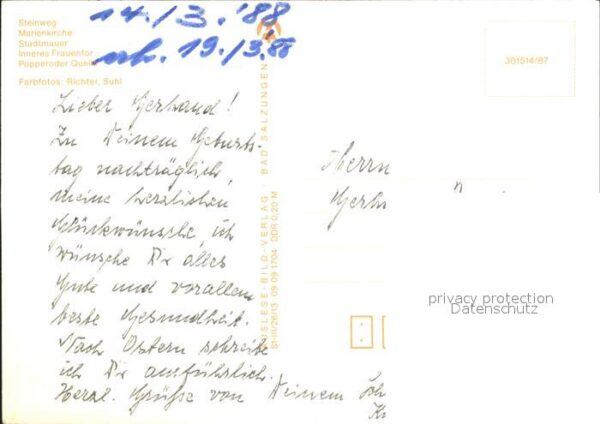 14./3.'88
erh. 19./3.88
Steinweg
Marienkirche
Stadtmauer
Inneres Frauentor
Popperoder Quelle
Farbfotos: Richter, Suhl
Lieber Gerhard!
Zu Deinem Geburts-
tag nachträglich
meine herzlichen
Glückwünsche, ich
wünsche Dir alles
Gute und vorallem
beste Gesundheit.
Nach Ostern schreibe
ich Dir ausführlich.
Herzl. Grüße von Deinem
AUSLESE-BILD-VERLAG · BAD SALZUNGEN
SHII/26/13 09 09 1704 DDR 0,20 M
301514/87
Herrn
Gerh
privacy protection
Datenschutz